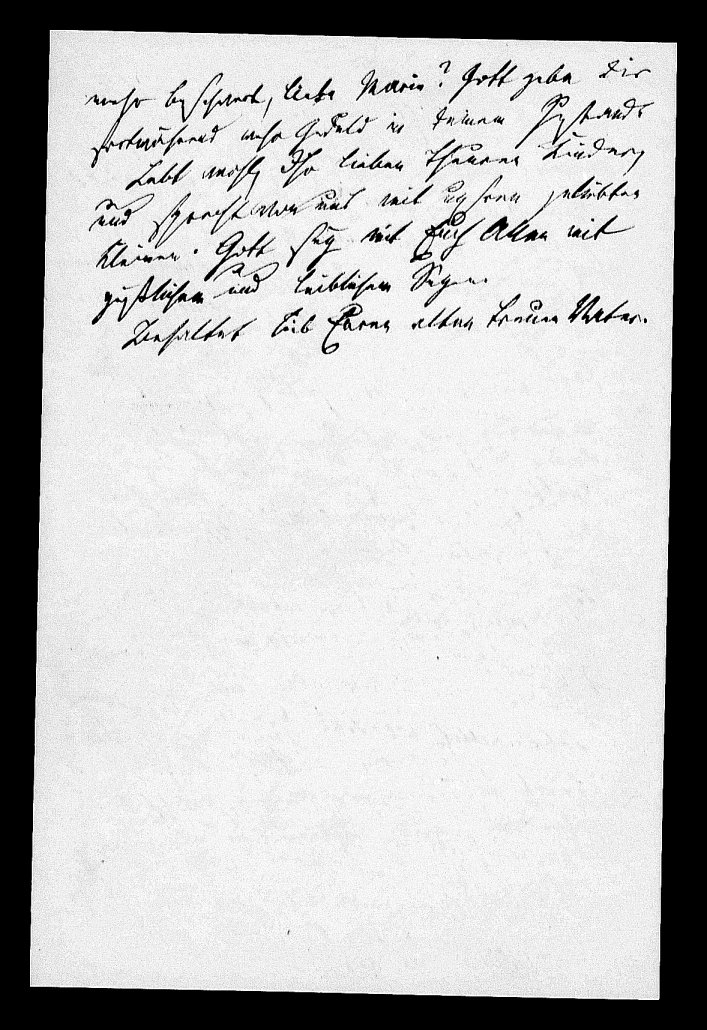 mehr beschwert, liebe Marie? Gott gebe Dir
fortwährend mehr Geduld in Deinem
Lebt wohl, Ihr lieben theuren Kinder,
und sprecht von uns mit unsren geliebten
Kleinen. Gott sey mit Euch Allen mit
geistlichem und leiblichem Segen.
Behaltet lieb Euren alten treuen Vater.